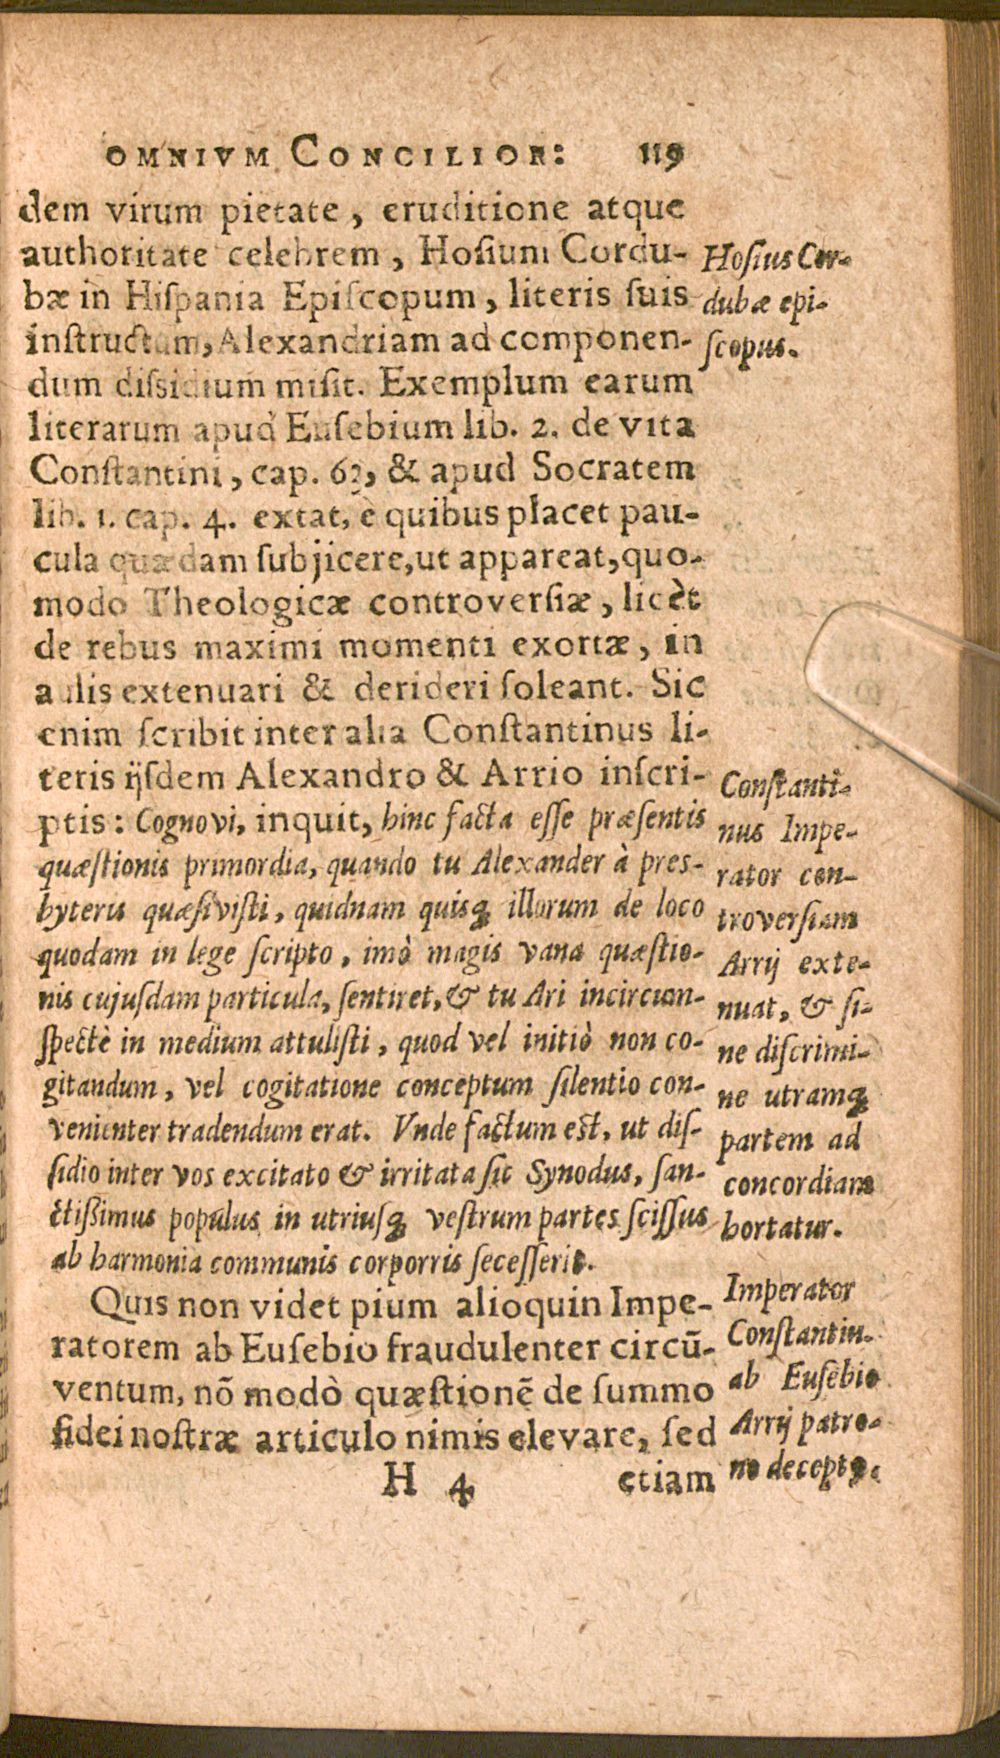 OMNIVM CONCILIOR: 119
dem virum pietate, eruditione atque
authoritate celebrem, Hosium Cordu-
bæ in Hispania Episcopum, literis suis
instructum, Alexandriam ad componen-
dum dissidium misit. Exemplum earum
literarum apud Eusebium lib. 2. de vita
Constantini, cap. 63, & apud Socratem
lib. 1. cap. 4. extat, è quibus placet pau-
cula quædam subjicere, ut appareat, quo-
modo Theologicæ controversiæ, licèt
de rebus maximi momenti exortæ, in
aulis extenuari & derideri soleant. Sic
enim scribit inter alia Constantinus li-
teris ijsdem Alexandro & Arrio inscri-
ptis: Cognovi, inquit, hinc facta esse præsentis
quæstionis primordia, quando tu Alexander à pres-
byteris quæsivisti, quidnam quisq; illorum de loco
quodam in lege scripto, imò magis vana quæstio-
nis cujusdam particula, sentiret, & tu Ari incircum-
spectè in medium attulisti, quod vel initiò non co-
gitandum, vel cogitatione conceptum silentio con-
venienter tradendum erat. Vnde factum est, ut dis-
sidio inter vos excitato & irritata sit Synodus, san-
ctißimus populus in utriusq; vestrum partes scissus
ab harmonia communis corporris secesserit.
Quis non videt pium alioquin Impe-
ratorem ab Eusebio fraudulenter circū-
ventum, nō modò quæstionē de summo
fidei nostræ articulo nimis elevare, sed
H 4 etiam
Hosius Cor-
dubæ epi-
scopus.
Constanti-
nus Impe-
rator con-
troversiam
Arrij exte-
nuat, & si-
ne discrimi-
ne utramq;
partem ad
concordiam
hortatur.
Imperator
Constantin.
ab Eusebio
Arrij patro-
no deceptꝰ.